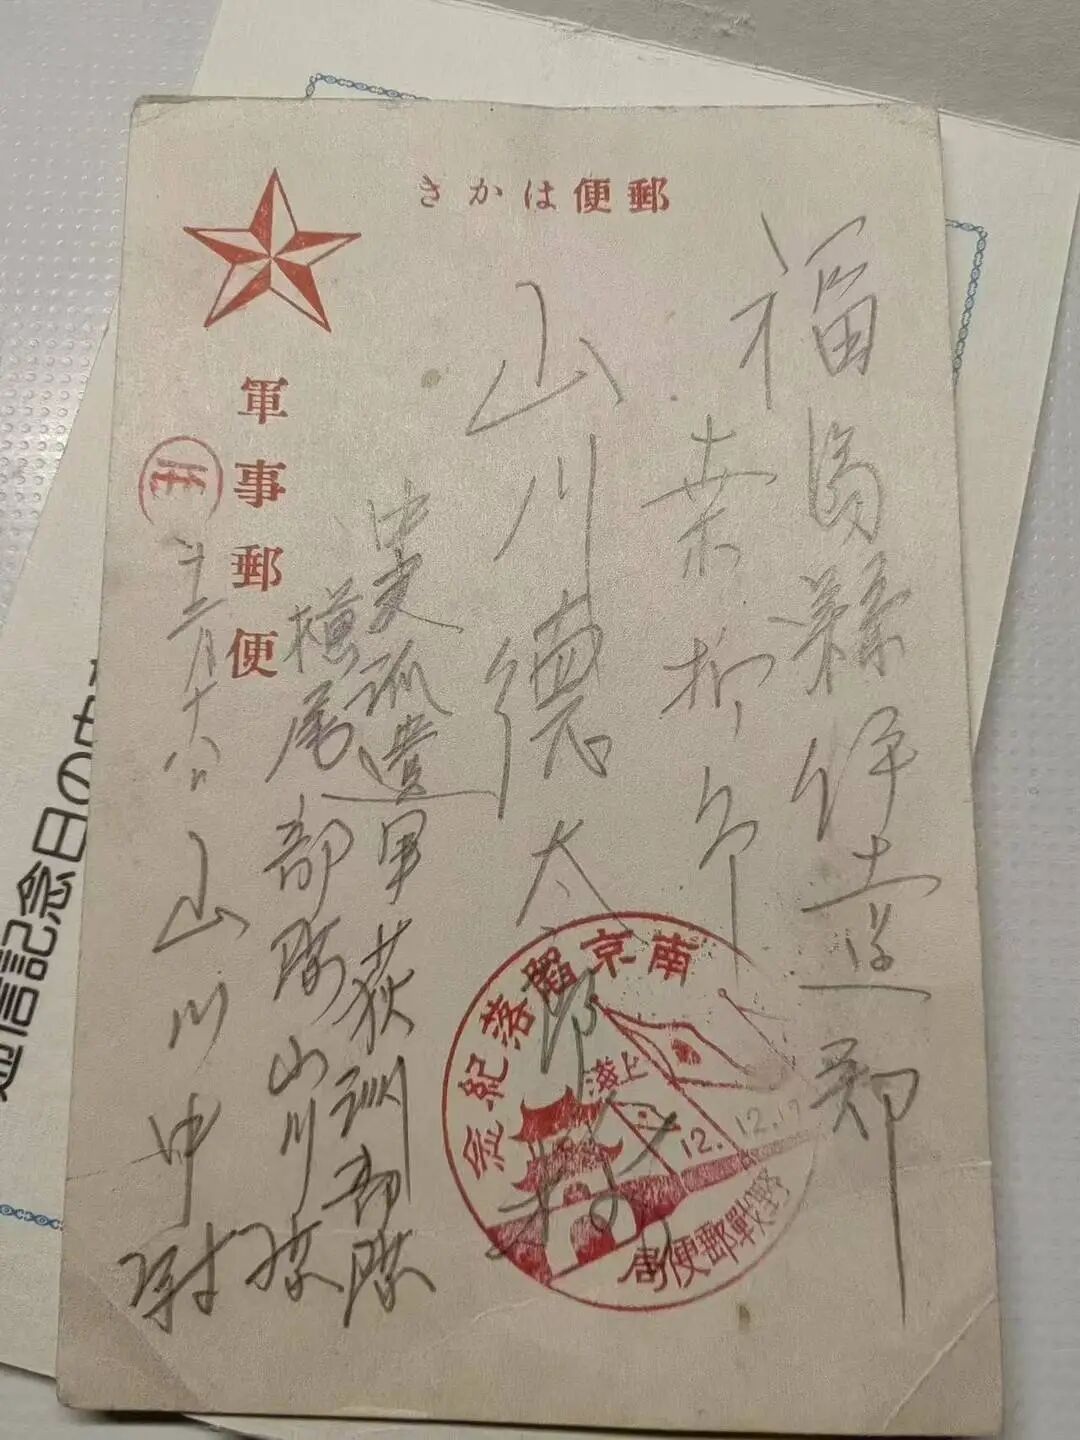 郵便はかき
軍事郵便
福島縣伊達郡
桑折町
山川德太郎様
中支派遣軍荻洲部隊
横尾部隊山川隊
十二月十八日
山川中尉
南京陥落紀念
上海
12.12.17
野戰郵便局
通信記念日の